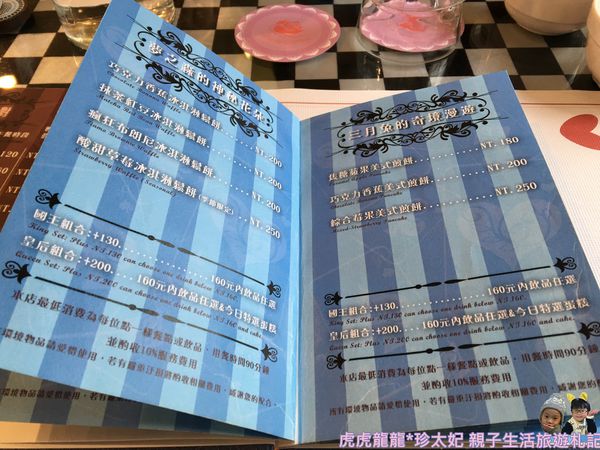 夢之森的神秘花朵
巧克力香蕉冰淇淋鬆餅......NT. 200
抹茶紅豆冰淇淋鬆餅......NT. 200
瘋狂布朗尼冰淇淋鬆餅......NT. 200
酸甜草莓冰淇淋鬆餅(季節限定)...NT. 250
Strawberry Waffle (Seasonal)
國王組合:+130..............160元內飲品任選
King Set: Plus NT.130 can choose one drink below NT.160.
皇后組合:+200......160元內飲品任選&今日特選蛋糕
Queen Set: Plus NT.200 can choose one drink below NT.160 and cake.
本店最低消費為每位點一樣餐點或飲品,用餐時間90分鐘
並酌收10%服務費用
三月兔的奇境漫遊
焦糖蘋果美式煎餅..............NT. 180
巧克力香蕉美式煎餅............NT. 200
綜合莓果美式煎餅..............NT. 250
Mixed Strawberry Pancake
國王組合:+130..............160元內飲品任選
King Set: Plus NT.130 can choose one drink below NT.160.
皇后組合:+200......160元內飲品任選&今日特選蛋糕
Queen Set: Plus NT.200 can choose one drink below NT.160 and cake.
本店最低消費為每位點一樣餐點或飲品,用餐時間90分鐘
並酌收10%服務費用
虎虎龍龍*珍太妃 親子生活旅遊札記